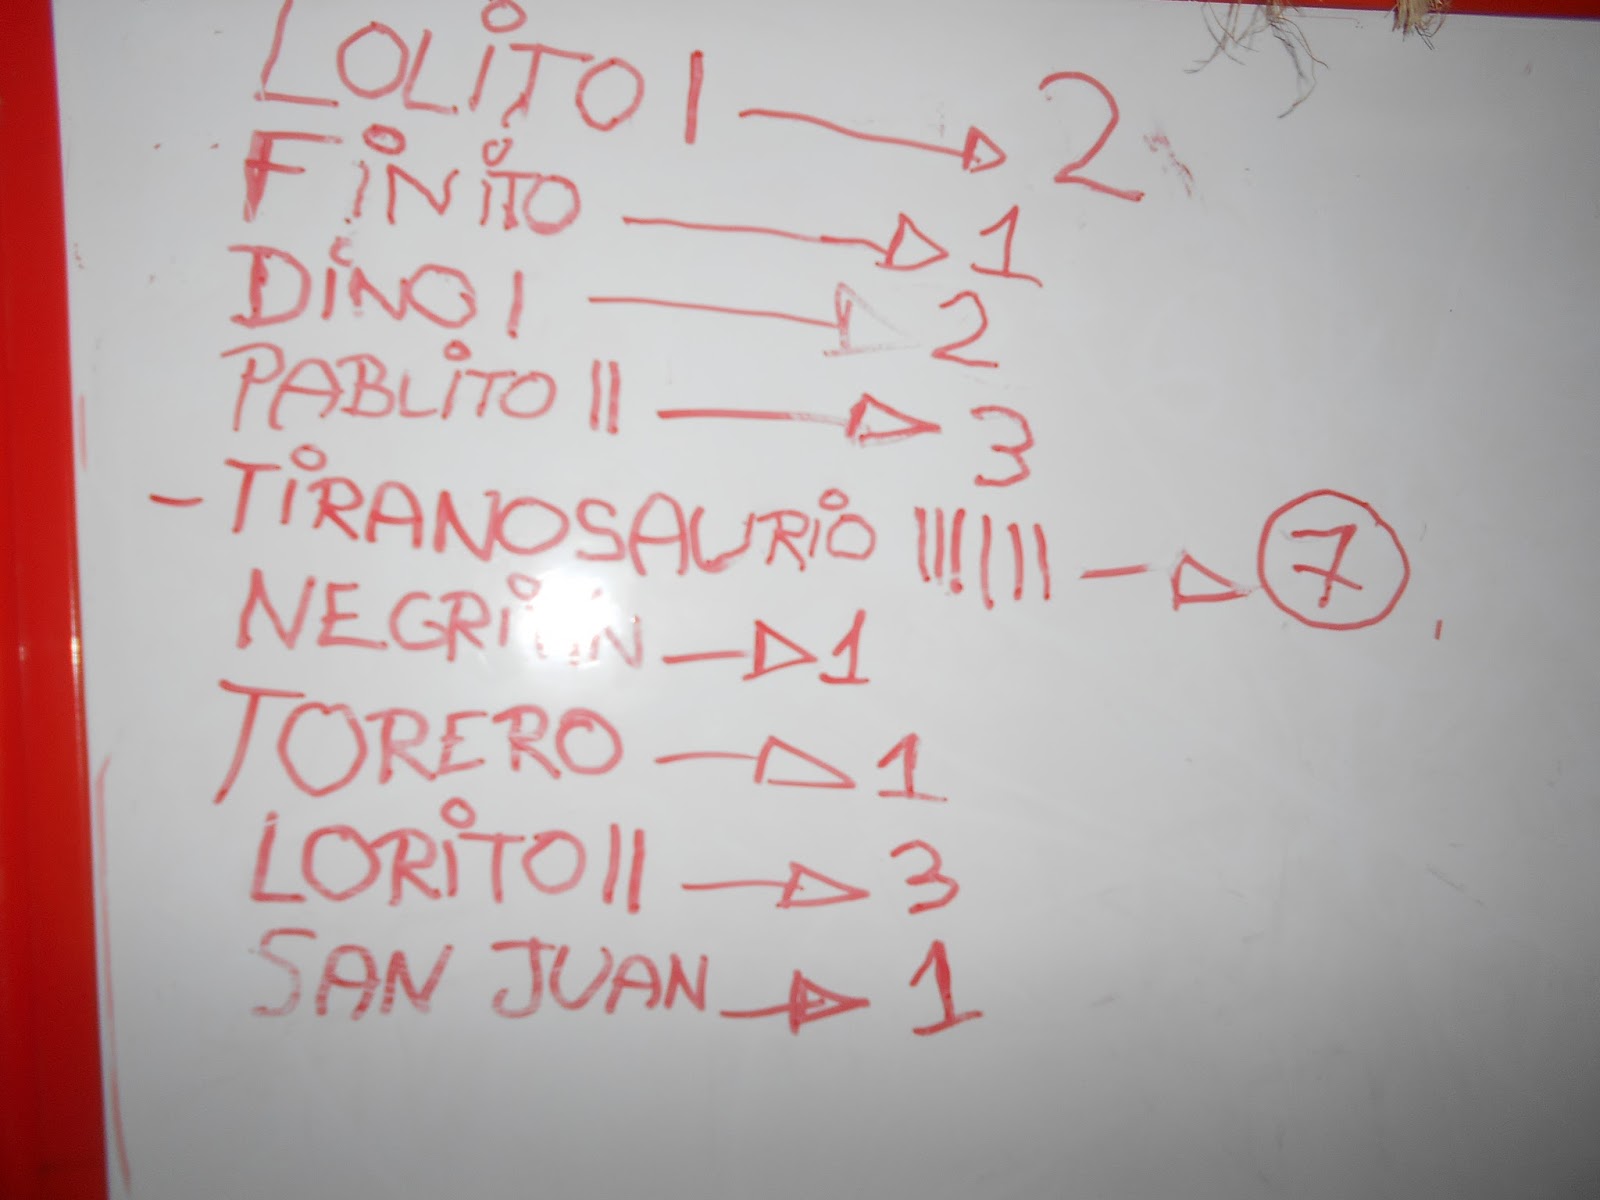 LOLiTO I → 2
FiNiTO → 1
DiNO I → 2
PABLiTO II → 3
- TiRANOSAURiO |||||| → 7
→ 1
TORERO → 1
LORiTO II → 3
SAN JUAN → 1